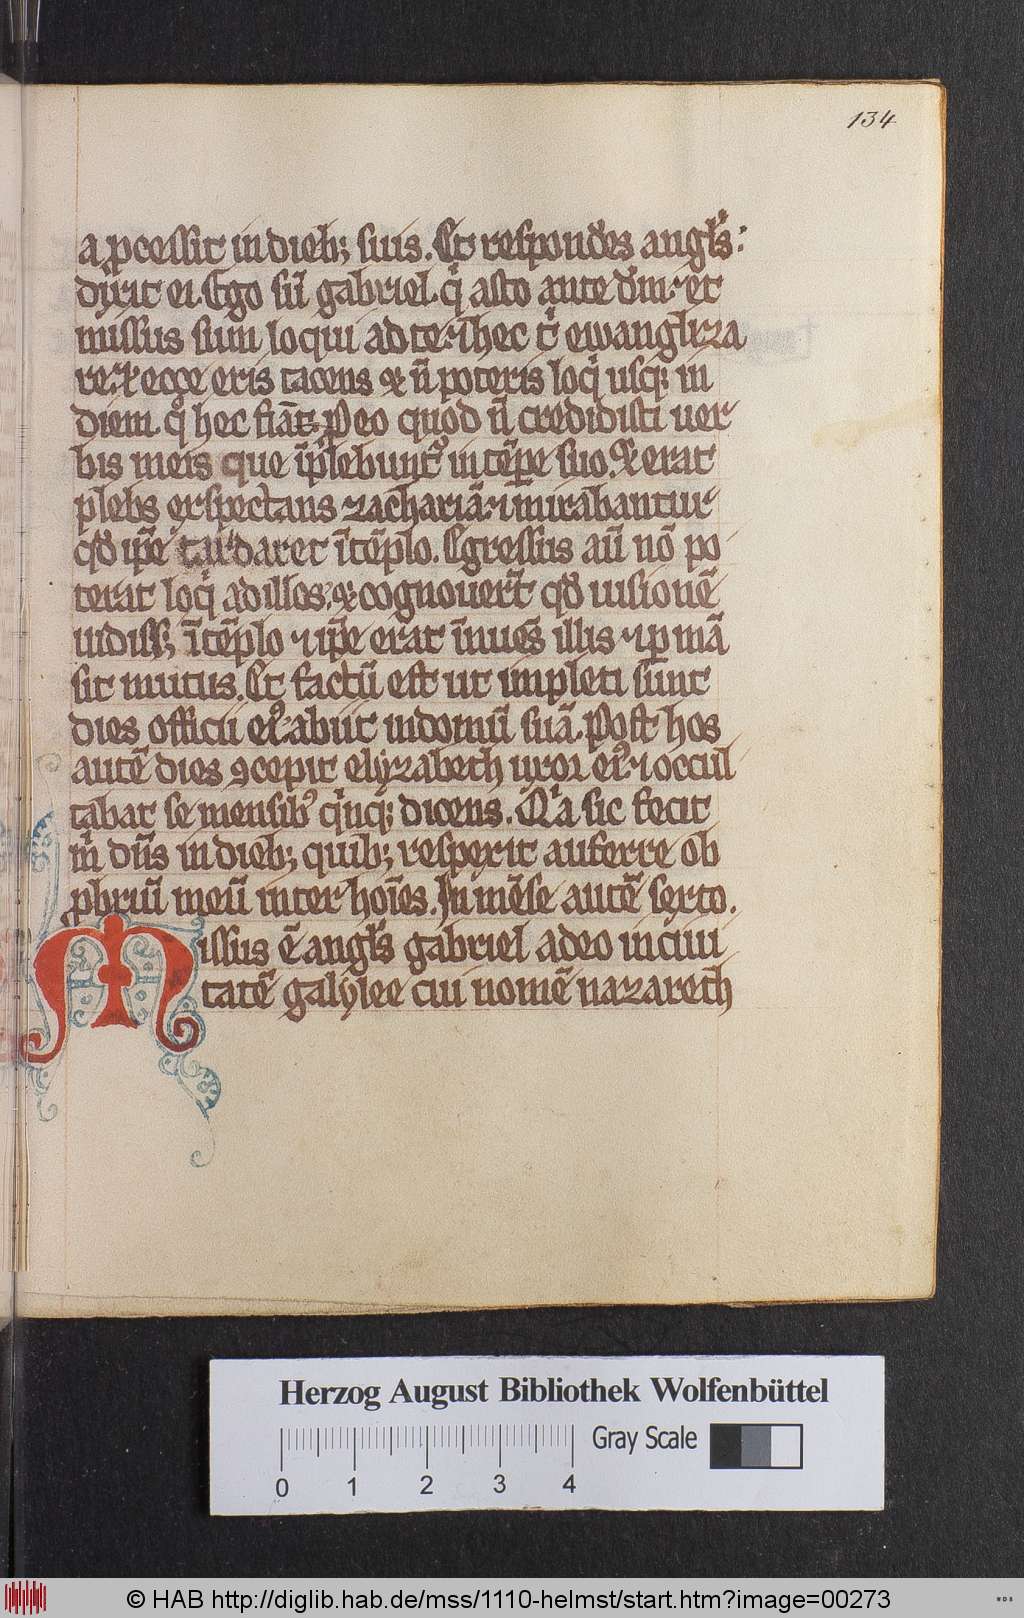 134
a ꝓcessit in dieb; suis. Et respondēs angl's:
dixit ei. Ego sū gabriel. q̇ asto ante dm̄. ⁊ et
missus sum loqui ad te. ⁊ hec t̄ ewangliza
re. ⁊ ecce eris tacens ⁊ n̄ poteris loq̇ usq; in
diem. q̊ hec fiāt. ꝓ eo quod n̄ credidisti uer
bis meis que īplebunt᷒ in tēpe suo. Et erat
plebs exspectans zachariā. ⁊ mirabantur
qd̄ ip̄e tardaret ī tēplo. Egressus au̅ nō po
terat loq̇ ad illos. ⁊ cognouer̄t qd̄ uisionē
uidiss; ī tēplo ⁊ ip̄e erat īnuēs illis ⁊ ꝑmā
sit mutus. Et factū est ut impleti sunt
dies officii ei᷒. abiit in domū suā. Post hos
autē dies ꝯcepit elyzabeth uxor ei᷒. ⁊ occul
tabat se mensib᷒ q̇nq; dicens. Q̇a sic fecit
m̊ dn̄s in dieb; quib; respexit auferre ob
ꝓbriū meū inter hoīes. In mēse autē sexto.
Missus ē angl's gabriel a deo in ciui
tatē galylee cui nomē nazareth
Herzog August Bibliothek Wolfenbüttel
Gray Scale
0 1 2 3 4
© HAB http://diglib.hab.de/mss/1110-helmst/start.htm?image=00273